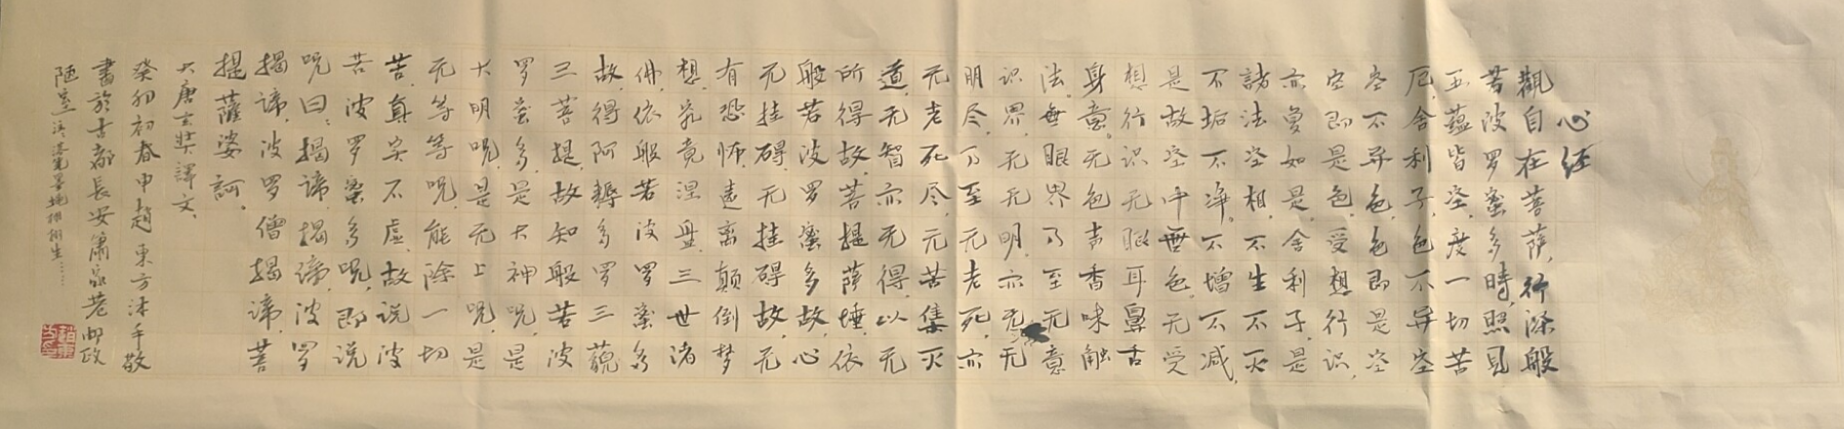 心经
觀自在菩萨,行深般
若波罗蜜多時,照見
五蕴皆空,度一切苦
厄,舍利子,色不异空
空不异色,色即是空
空即是色,受想行识,
亦复如是,舍利子,是
諸法空相,不生不灭
不垢不净。不增不减,
是故空中無色,无受
想行识,无眼耳鼻舌
身意。无色声香味觸
法。無眼界乃至无意
识界,无无明,亦无无
明尽,乃至无老死,亦
无老死尽,无苦集灭
道,无智亦无得,以无
所得故,菩提萨埵,依
般若波罗蜜多故,心
无挂碍,无挂碍故,无
有恐怖,远离颠倒梦
想,究竟涅盘,三世诸
佛,依般若波罗蜜多
故,得阿耨多罗三藐
三菩提,故知般若波
罗蜜多,是大神咒,是
大明咒,是无上咒,是
无等等咒,能除一切
苦,真实不虚,故说波
若波罗蜜多咒,即说
咒曰:揭谛,揭谛,波罗
揭谛,波罗僧揭谛,菩
提薩婆訶。
大唐玄奘譯文、
癸卯初春申趙東方沐手敬
書於古都長安箫
陋室